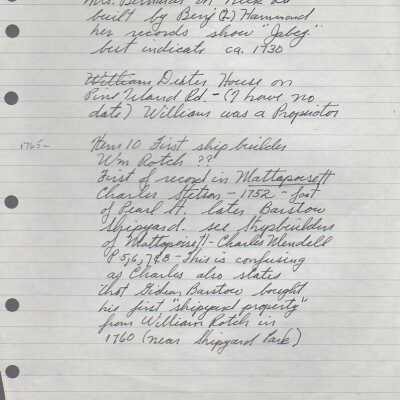 Mrs. Bernards on Neck Rd
built by Benj (?) Hammond
her records show "Jabez"
but indicate ca. 1730
William Dexter House on
Pine Island Rd - (I have no
date) William was a Proprietor
1765- Item 10 First shipbuilder
Wm Rotch ??
First of record in Mattapoisett
Charles Stetson - 1752 - foot
of Pearl St. later Barstow
Shipyard. see Shipbuilders
of Mattapoisett - Charles Mendell
P 5, 6, 7 & 8 - This is confusing
as Charles also states
that Gideon Barstow bought
his first "shipyard property"
from William Rotch in
1760 (near Shipyard Park)